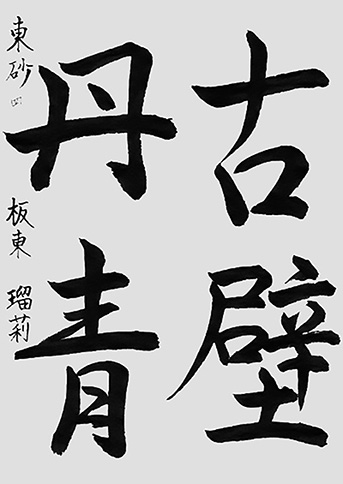 古壁
丹青
東砂 四 板東 瑠莉